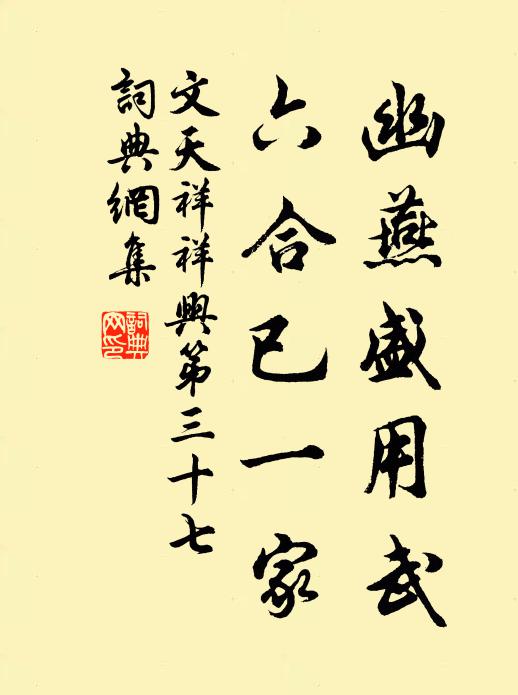 幽燕盛用武
六合已一家
文天祥祥興第三十七
詞典網集
詞典網印